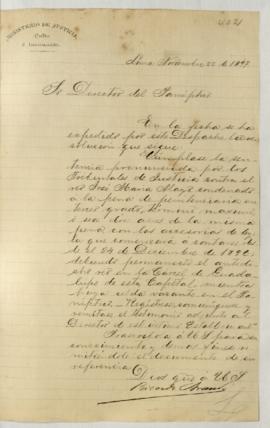 MINISTERIO DE JUSTICIA,
Culto
Lima Noviembre 22 de 1897.
Sr Director del Panóptico
En la fecha se ha
expedido por este Despacho la re-
solución que sigue:
"Cúmplase la sen-
tencia pronunciada por los
Tribunales de Justicia contra el
reo José Maria condenado
a la pena de penitenciaria en
tercer grado, termino maximo
ó sea años de la misma
pena con las accesorias de ley
la que comenzará a contarse des-
de el 24 de Diciembre de
debiendo permanecer el antedi-
cho reo en la Carcel de Guada-
lupe de esta Capital, mientras
haya celda vacante en el Pa-
nóptico. - Registrese, comuniquese y
remitase el testimonio adjunto al
Director de este ultimo
Trascribola á US. para su
conocimiento y demas fines re-
mitiendole el documento de su
referencia
Dios gue á US.
Ricardo